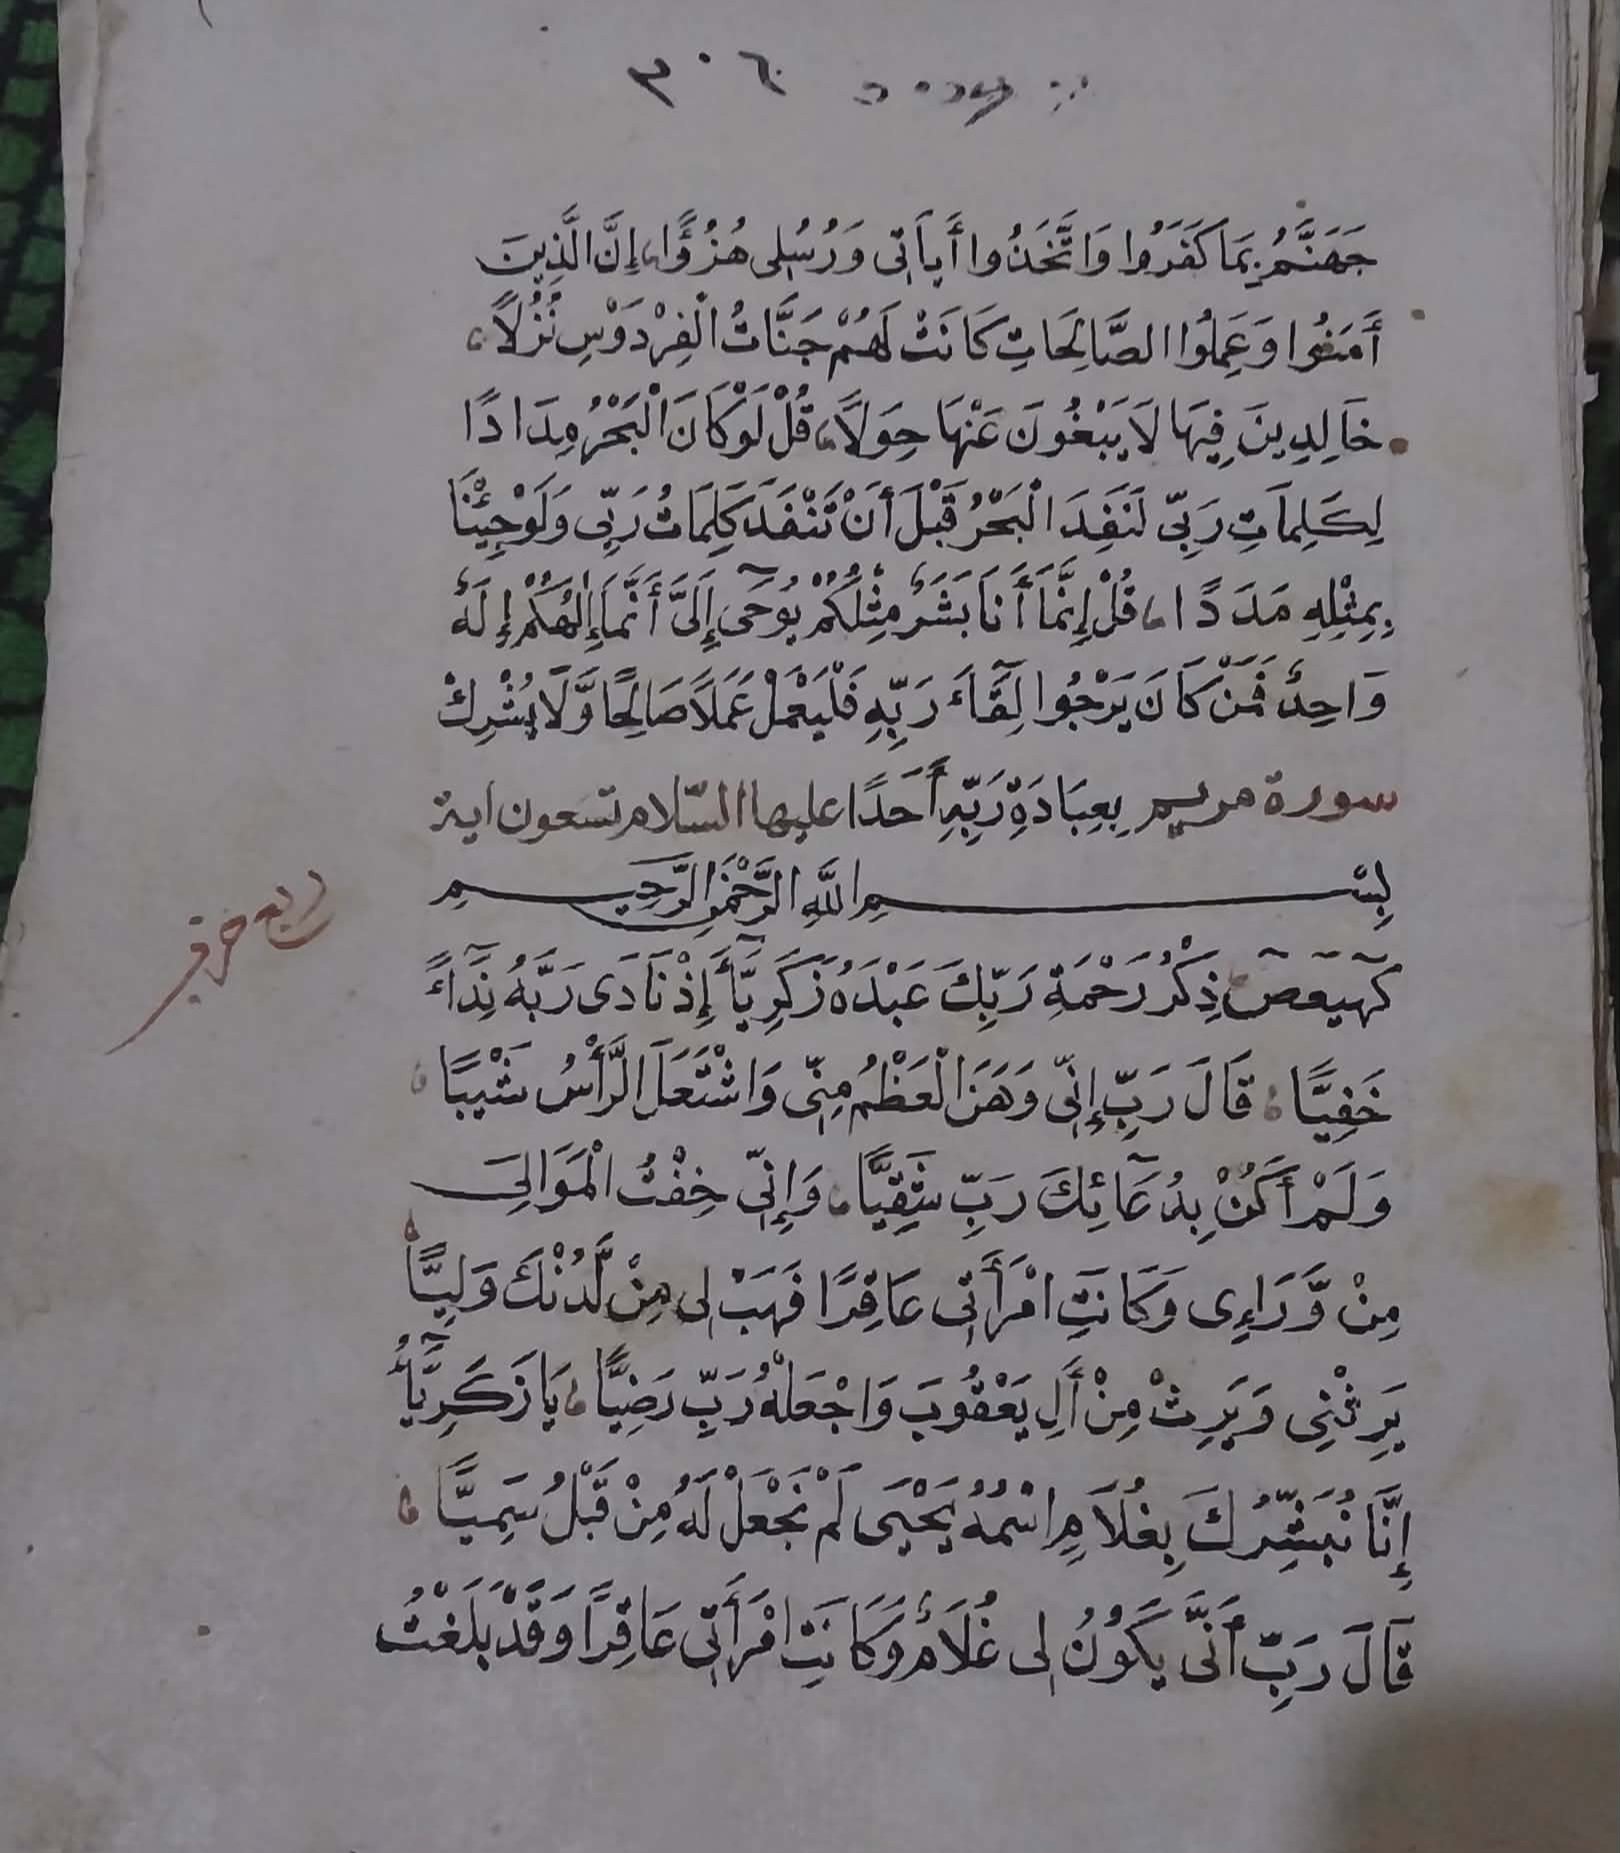 ٣٠٦
جَهَنَّمُ بِمَا كَفَرُوا وَاتَّخَذُوا أَيَاتِى وَرُسُلِى هُزُؤًا إِنَّ الَّذِينَ
أَمَنُوا وَعَمِلُوا الصَّالِحَاتِ كَانَتْ لَهُمْ جَنَّاتُ الْفِرْدَوْسِ نُزُلًا
خَالِدِينَ فِيهَا لَا يَبْغُونَ عَنْهَا حِوَلًا قُلْ لَوْ كَانَ الْبَحْرُ مِدَادًا
لِكَلِمَاتِ رَبِّى لَنَفِدَ الْبَحْرُ قَبْلَ أَنْ تَنْفَدَ كَلِمَاتُ رَبِّى وَلَوْ جِئْنَا
بِمِثْلِهِ مَدَدًا قُلْ إِنَّمَا أَنَا بَشَرٌ مِثْلُكُمْ يُوحَى إِلَىَّ أَنَّمَا إِلٰهُكُمْ إِلَهٌ
وَاحِدٌ فَمَنْ كَانَ يَرْجُوا لِقَآءَ رَبِّهِ فَلْيَعْمَلْ عَمَلًا صَالِحًا وَّلَا يُشْرِكْ
سورة مريم بِعِبَادَةِ رَبِّهِ أَحَدًا عليها السّلام تسعون اية
بِسْمِ اللَّهِ الرَّحْمٰنِ الرَّحِيمِ
كٓهيعٓصٓ ذِكْرُ رَحْمَةِ رَبِّكَ عَبْدَهُ زَكَرِيَّآءَ إِذْ نَادَى رَبَّهُ نِدَآءً
ربع حزب
خَفِيًّا قَالَ رَبِّ إِنِّى وَهَنَ الْعَظْمُ مِنِّى وَاشْتَعَلَ الرَّأْسُ شَيْبًا
وَلَمْ أَكُنْ بِدُعَآئِكَ رَبِّ شَقِيًّا وَإِنِّى خِفْتُ الْمَوَالِىَ
مِنْ وَّرَاءِى وَكَانَتِ امْرَأَتِى عَاقِرًا فَهَبْ لِى مِنْ لَّدُنْكَ وَلِيًّا
يَرِثُنِى وَيَرِثُ مِنْ أَلِ يَعْقُوبَ وَاجْعَلْهُ رَبِّ رَضِيًّا يَا زَكَرِيَّآءُ
إِنَّا نُبَشِّرُكَ بِغُلَامٍ اسْمُهُ يَحْيَى لَمْ نَجْعَلْ لَهُ مِنْ قَبْلُ سَمِيًّا
قَالَ رَبِّ أَنَّى يَكُونُ لِى غُلَامٌ وَكَانَتِ امْرَأَتِى عَاقِرًا وَقَدْ بَلَغْتُ